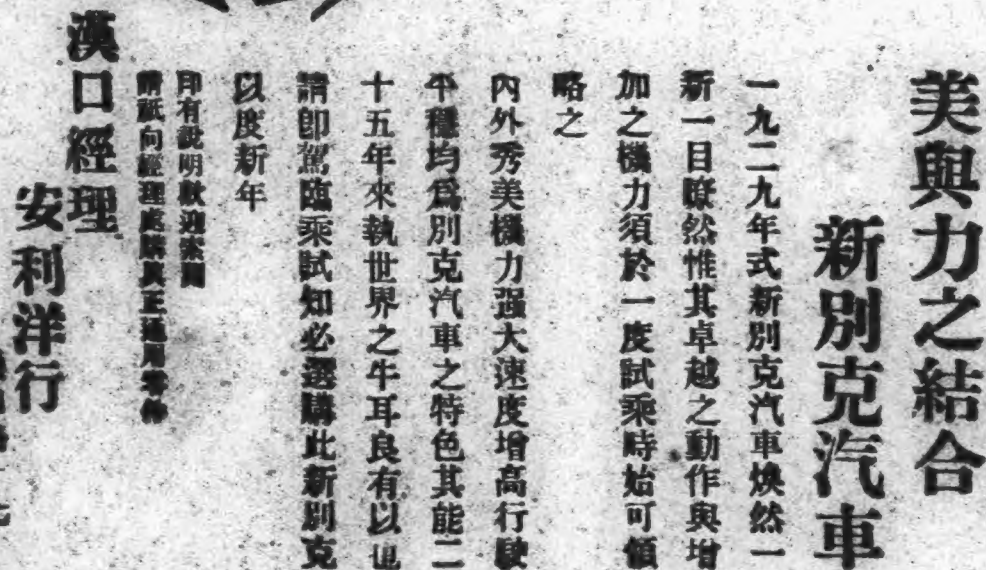 美與力之結合
新別克汽車
一九二九年式新別克汽車煥然一
新一目瞭然惟其卓越之動作與增
加之機力須於一度試乘時始可領
略之
內外秀美機力强大速度增高行駛
平穩均爲別克汽車之特色其能二
十五年來執世界之牛耳良有以也
請卽駕臨乘試知必選購此新別克
以度新年
印有說明歡迎索閱
請祇向經理處購真正通用零件
漢口經理
安利洋行